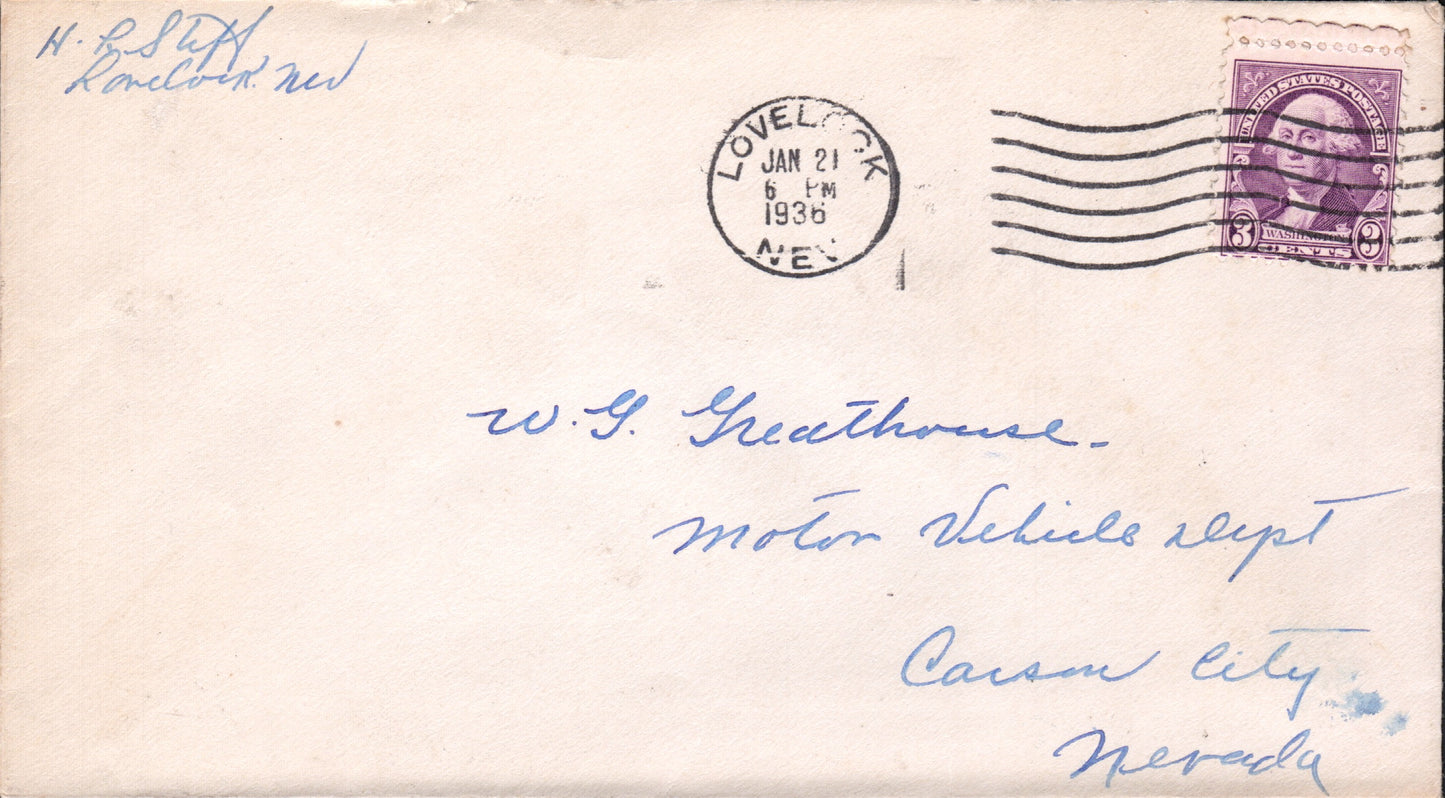 H. R Stiff
Lovelock. Nev
LOVELOCK
JAN 21
6 PM
1936
NEV
UNITED STATES POSTAGE
3 WASHINGTON 3
CENTS
W. G. Greathouse-
Motor Vehicle Dept
Carson City
Nevada